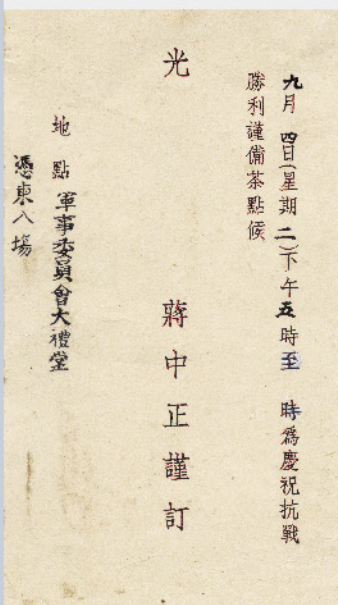 九月四日(星期二)下午五時至　時爲慶祝抗戰
勝利謹備茶點候
光
蔣中正謹訂
地點軍事委員會大禮堂
憑柬入場